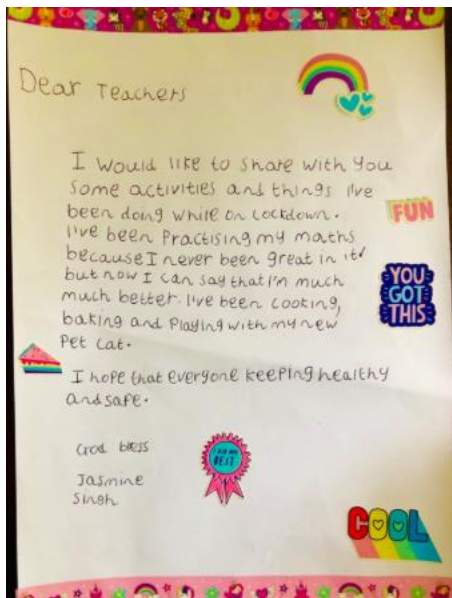 Dear Teachers
I would like to share with you
some activities and things I've
been doing while on lockdown.
FUN
I've been Practising my maths
because I never been great in it
but now I can say that I'm much
YOU
GOT
THIS
much better. I've been cooking,
baking and Playing with my new
Pet cat.
I hope that everyone keeping healthy
and safe.
God bless
I DID MY
BEST
Jasmine
Singh
COOL